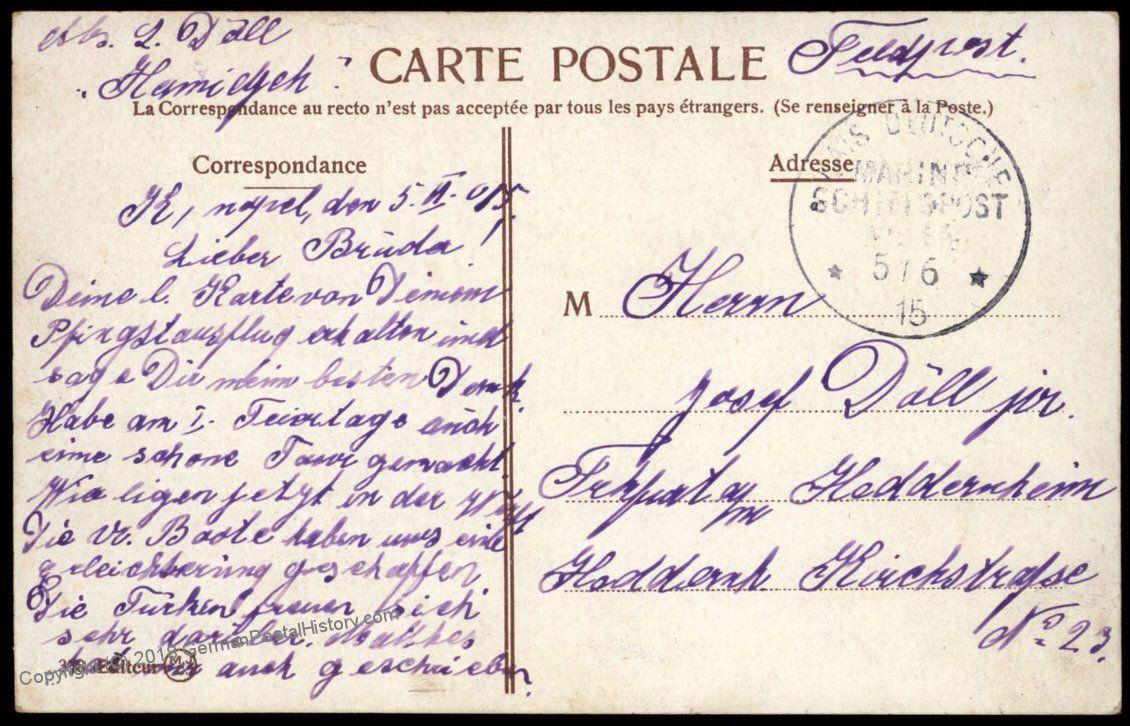 Abs. L. Döll
"Hamidjeh"
CARTE POSTALE
Feldpost.
La Correspondance au recto n'est pas acceptée par tous les pays étrangers. (Se renseigner à la Poste.)
Correspondance
den 5. VI. 015.
Lieber Bruder!
Deine l. Karte von Deinem
Pfingstausflug erhalten und
sage Dir meine besten Dank.
Habe am I. Feiertage auch
eine schöne Tour gemacht
Wir ligen jetzt in der
Die Boote haben uns eine
geschaffen
Die Türken freuen sich
sehr darüber.
auch geschrieben.
Editeur
Adresse
KAIS. DEUTSCHE
MARINE
SCHIFFSPOST
5 / 6
15
M Herrn
Josef Döll jr.
Frankfurt a/m Heddernheim
Heddernh. Kirchstrasse
No 23.
Copyright 2018 GermanPostalHistory.com